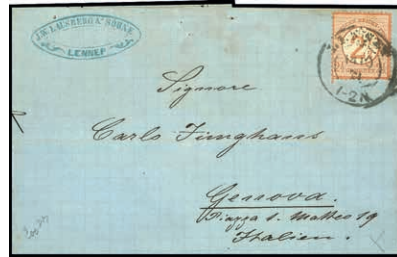 LENNEP
Signore
Carlo Junghans
Genova.
Piazza S. Matteo 19
Italien.
1-2N